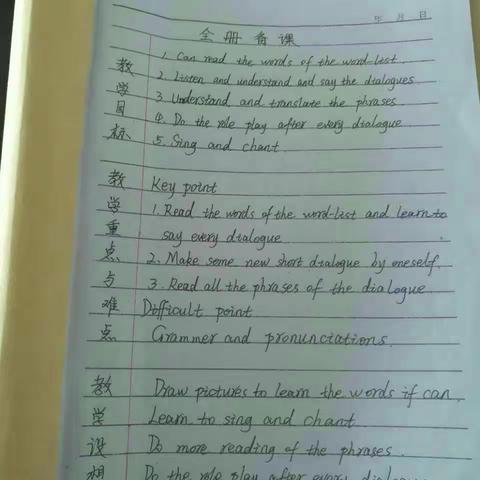 年 月 日
全册备课
教学目标
1. Can read the words of the word-list.
2. Listen and understand and say the dialogues
3. Understand and translate the phrases
4. Do the role play after every dialogue
5. Sing and chant
教学重点与难点
Key point
1. Read the words of the word-list and learn to
say every dialogue
2. Make some new short dialogue by oneself.
3. Read all the phrases of the dialogue
Difficult point
Grammer and pronunciations.
教学设想
Draw pictures to learn the words if can.
Learn to sing and chant
Do more reading of the phrases.
Do the role play after every dialogue